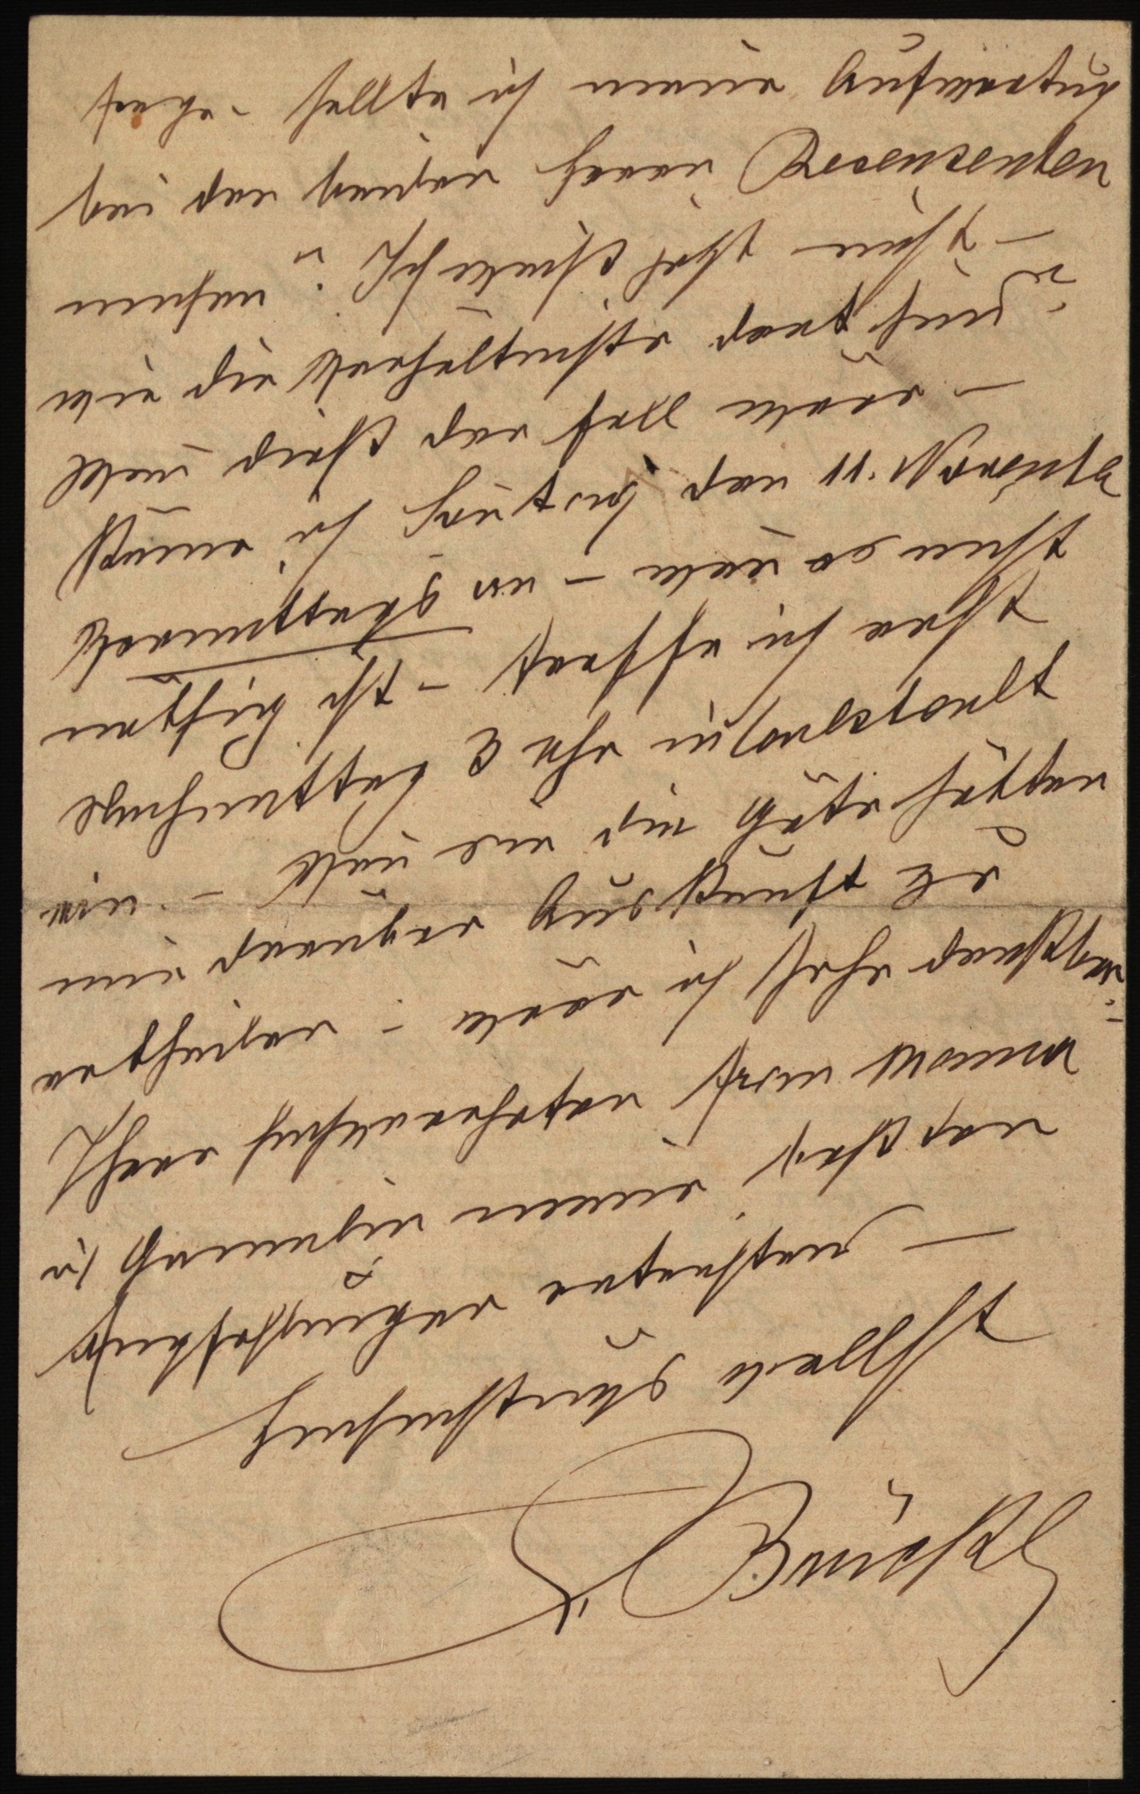 frage - sollte ich meine Aufwartung
bei den beiden Herrn Recensenten
machen"? Ich weiß jetzt nicht -
wie die Verhältnisse dort sind?
Wenn dieß der Fall wäre -
käme ich Sontag den 11. November
Vormittags an - wenn es nicht
nöthig ist - treffe ich erst
Nachmittag 3 Uhr in
ein. - Wenn Sie die Güte hätten
mir darüber Auskunft zu
ertheilen - wäre ich sehr dankbar.-
Ihrer hochverehrten Frau Mama
u Gemalin meine besten
Empfehlungen entrichtend -
Hochachtungsvollst
A. Brückl